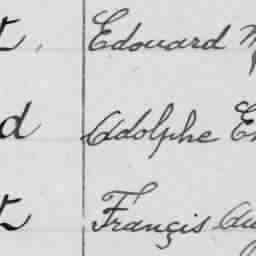 t, Edouard
d Adolphe
t Françis